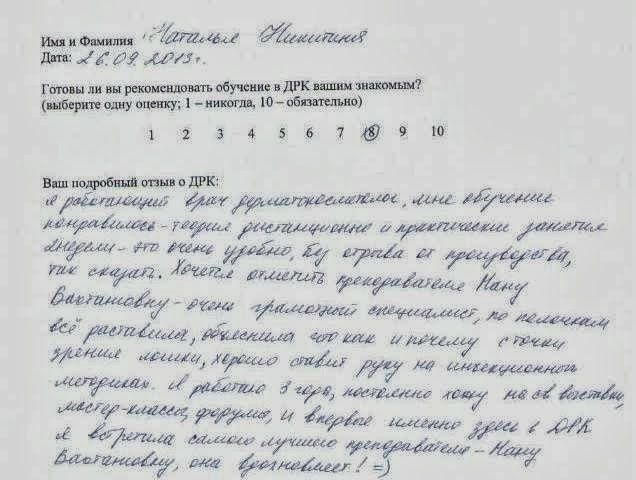 Имя и Фамилия Наталья Никитина
Дата: 26.09.2013г.
Готовы ли вы рекомендовать обучение в ДРК вашим знакомым?
(выберите одну оценку; 1 – никогда, 10 – обязательно)
1 2 3 4 5 6 7 8 9 10
Ваш подробный отзыв о ДРК:
Я работающий врач дерматокосметолог, мне обучение
понравилось - теория дистанционно и практические занятия
2 недели - это очень удобно, без отрыва от производства,
так сказать. Хочется отметить преподавателя Нану
Вахтанговну - очень грамотный специалист, по полочкам
всё расставила, объяснила что как и почему с точки
зрения логики, хорошо ставит руку на инъекционных
методиках. Я работаю 3 года, постоянно хожу на св выставки,
мастер-классы, форумы, и впервые именно здесь в ДРК
я встретила самого лучшего преподавателя - Нану
Вахтанговну, она вдохновляет! =)